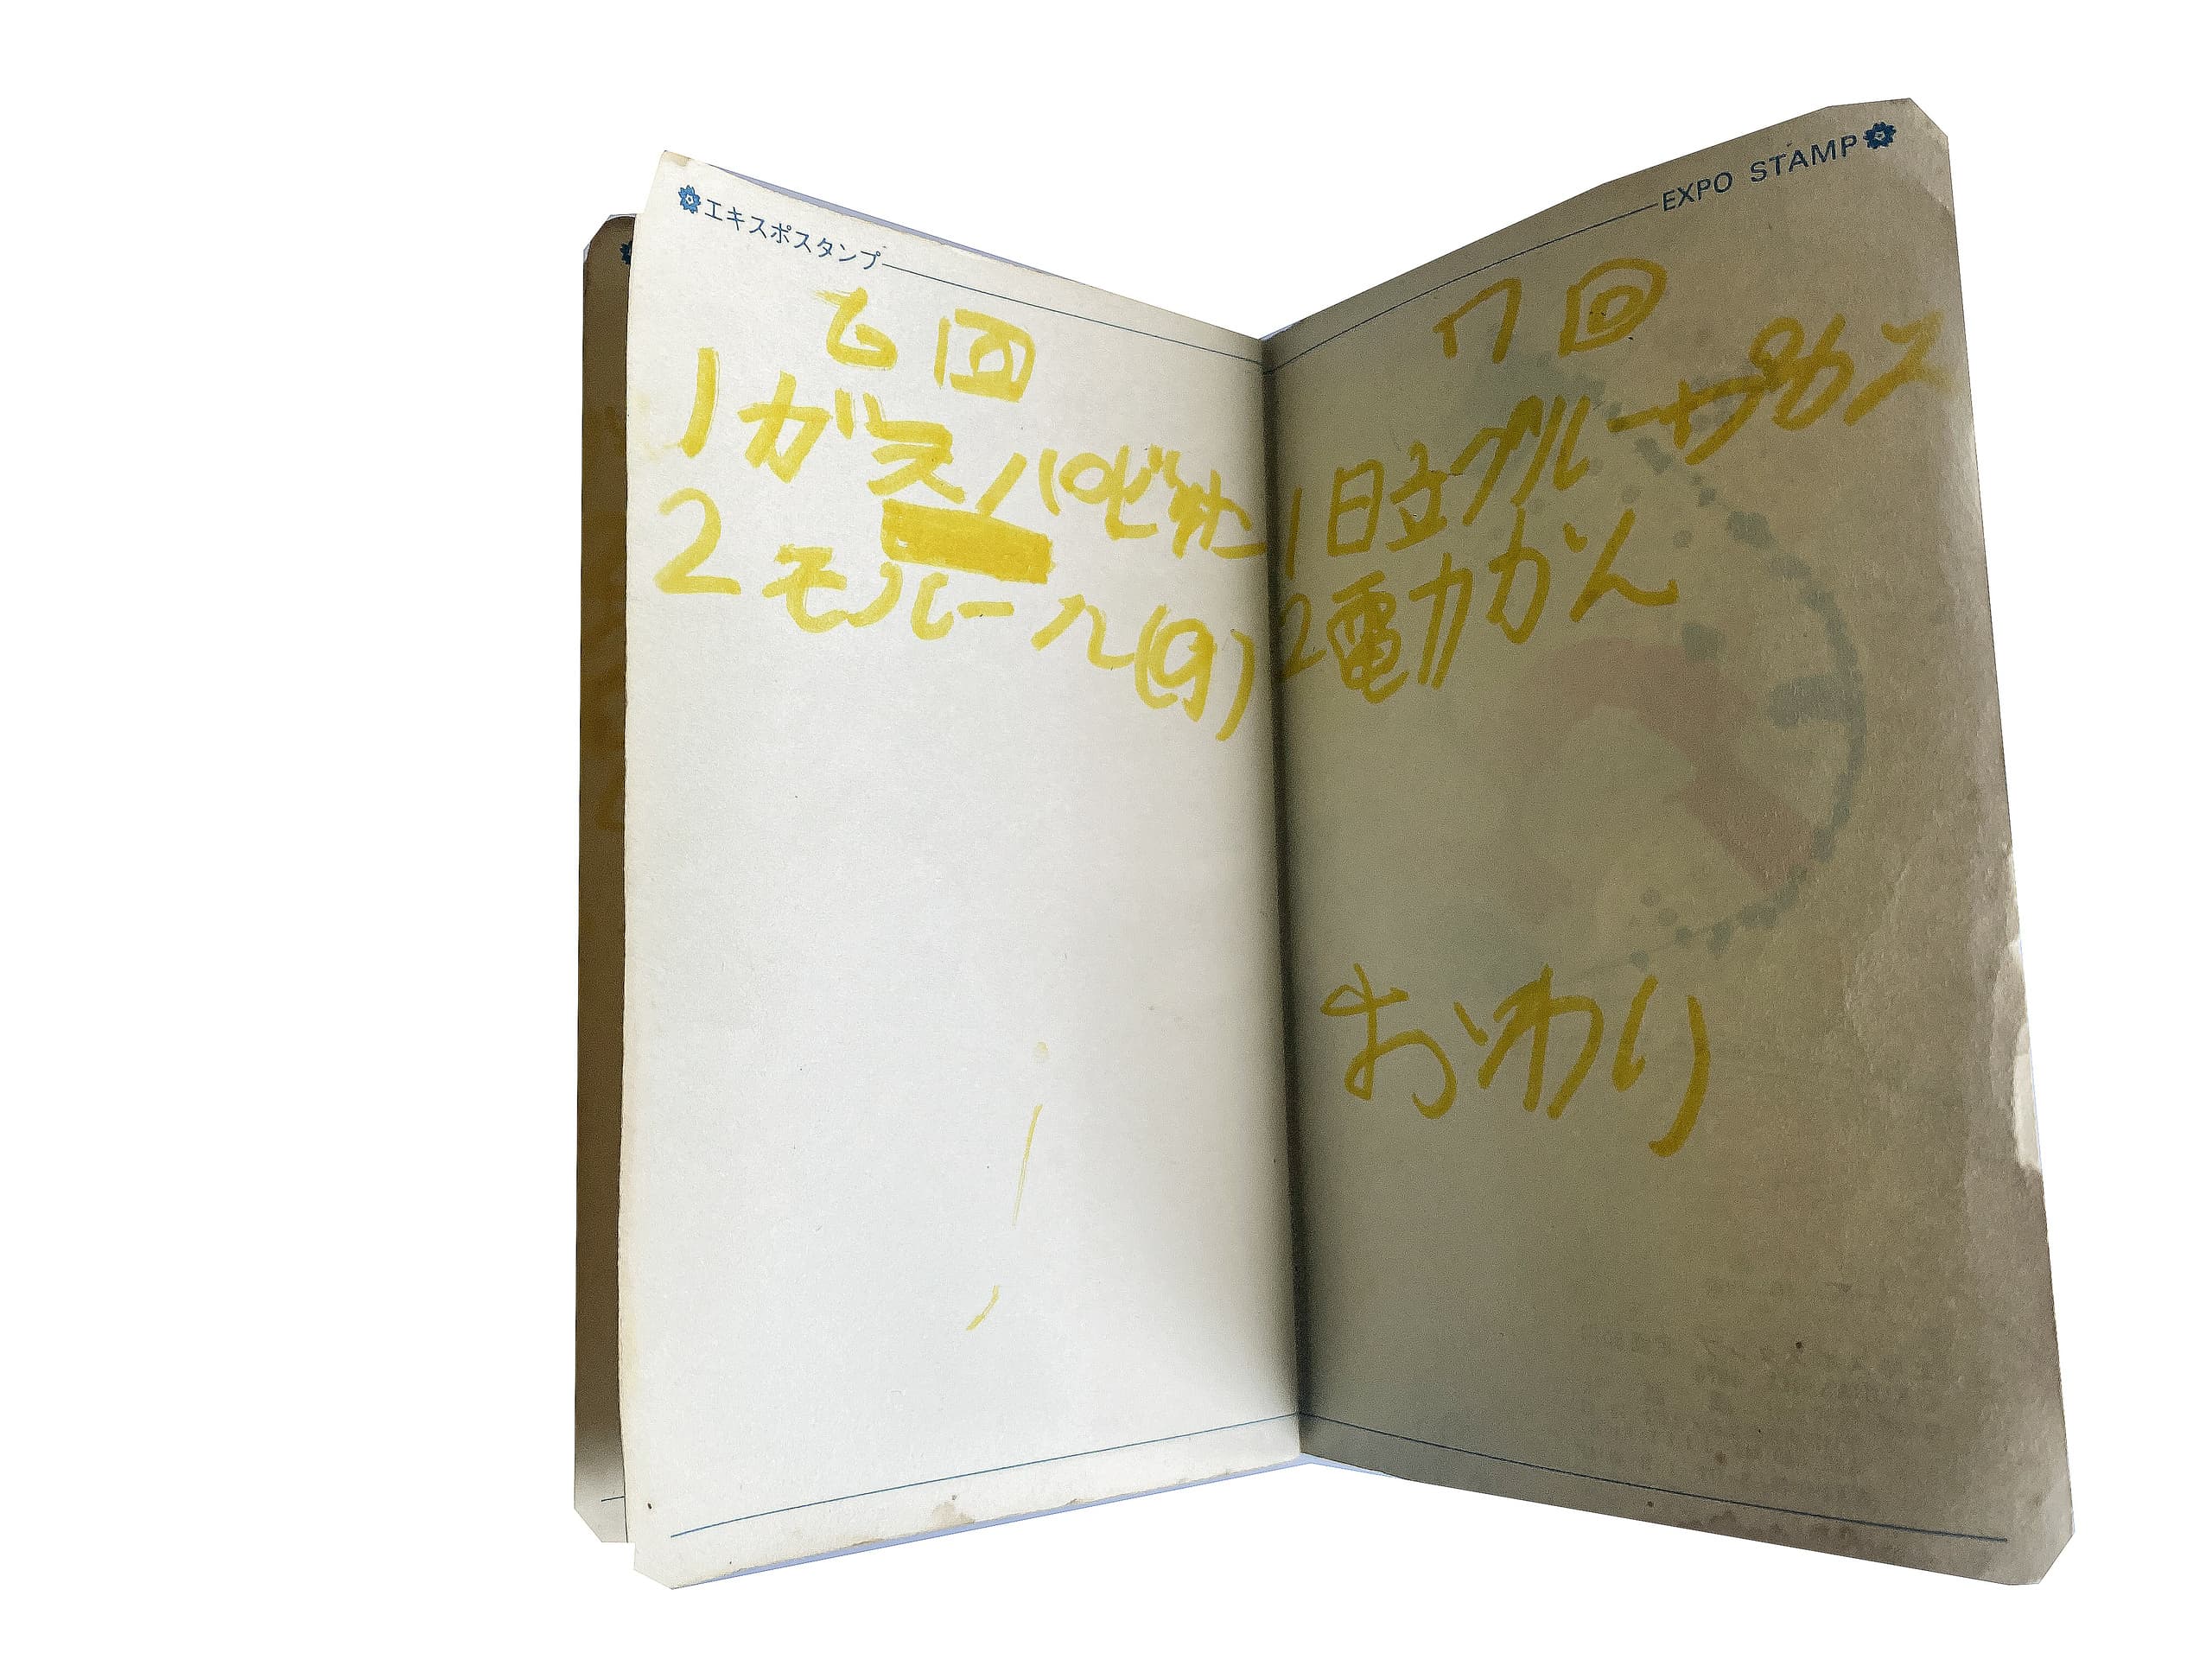 エキスポスタンプ
6回
1ガスパビリオン
2モノレール(夕)
EXPO STAMP
7回
1日立グループ
2電力かん
おわり